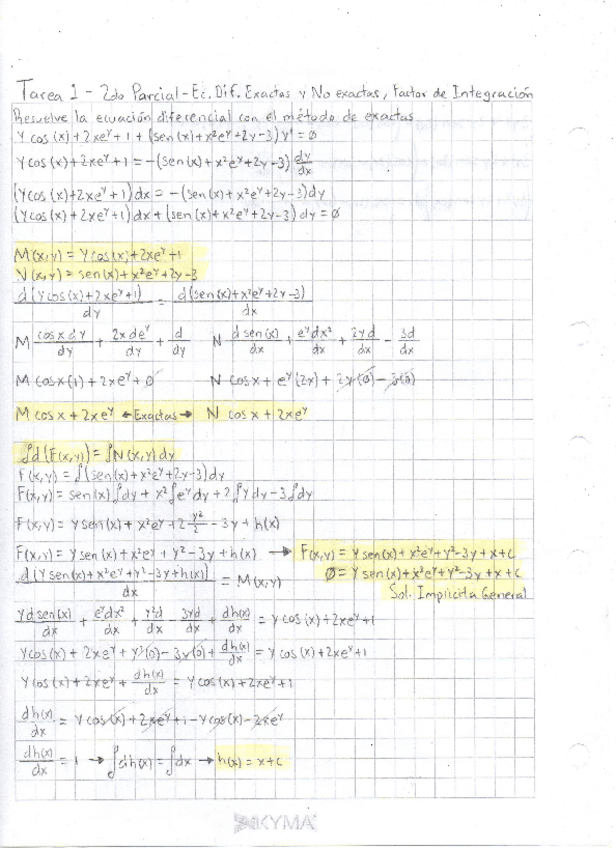 Tarea 1 - 2do Parcial - Ec. Dif. Exactas y No exactas, Factor de Integración
Resuelve la ecuación diferencial con el método de exactas
y cos(x)+2xe^y+1+(sen(x)+x²e^y+2y-3)y'=0
ycos(x)+2xe^y+1=-(sen(x)+x²e^y+2y-3) dy/dx
(ycos(x)+2xe^y+1)dx=-(sen(x)+x²e^y+2y-3)dy
(ycos(x)+2xe^y+1)dx+(sen(x)+x²e^y+2y-3)dy=0
M(x,y)=ycos(x)+2xe^y+1
N(x,y)=sen(x)+x²e^y+2y-3
d(ycos(x)+2xe^y+1)/dy = d(sen(x)+x²e^y+2y-3)/dx
M cosxdy/dy + 2xde^y/dy + d/dy N dsen(x)/dx + e^ydx²/dx + 2yd/dx - 3d/dx
M cosx(1)+2xe^y+0 N cosx+e^y(2x)+2y(0)-3(0)
M cosx+2xe^y ←Exactas→ N cosx+2xe^y
∫d(F(x,y))=∫N(x,y)dy
F(x,y)=∫(sen(x)+x²e^y+2y-3)dy
F(x,y)=sen(x)∫dy+x²∫e^ydy+2∫ydy-3∫dy
F(x,y)=ysen(x)+x²e^y+2 y²/2 -3y+h(x)
F(x,y)=ysen(x)+x²e^y+y²-3y+h(x) → F(x,y)=ysen(x)+x²e^y+y²-3y+x+c
d(ysen(x)+x²e^y+y²-3y+h(x))/dx = M(x,y) 0=ysen(x)+x²e^y+y²-3y+x+c
Sol. Implícita General
ydsen(x)/dx + e^ydx²/dx + y²d/dx - 3yd/dx + dh(x)/dx = ycos(x)+2xe^y+1
ycos(x)+2xe^y+y²(0)-3y(0)+dh(x)/dx=ycos(x)+2xe^y+1
ycos(x)+2xe^y+dh(x)/dx=ycos(x)+2xe^y+1
dh(x)/dx=ycos(x)+2xe^y+1-ycos(x)-2xe^y
dh(x)/dx=1 → ∫dh(x)=∫dx → h(x)=x+c
KYMA